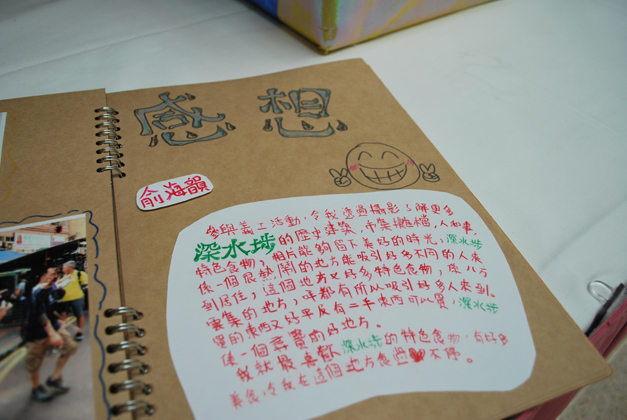 感想
俞海韻
參與義工活動,令我透過攝影了解更多
深水埗的歷史建築、市集攤檔、人和事、
特色食物,相片能夠留下美好的時光,深水埗
係一個很熱鬧的地方能吸引好多不同的人來
到居住,這個地方又好多特色食物,座八方
雲集的地方,咩都有所以吸引好多人來到
買的東西又好平反有二手東西可以買,深水埗
係一個尋寶的好地方。
我就最喜歡深水埗的特色食物,有好多
美食,令我在這個地方食過不停。